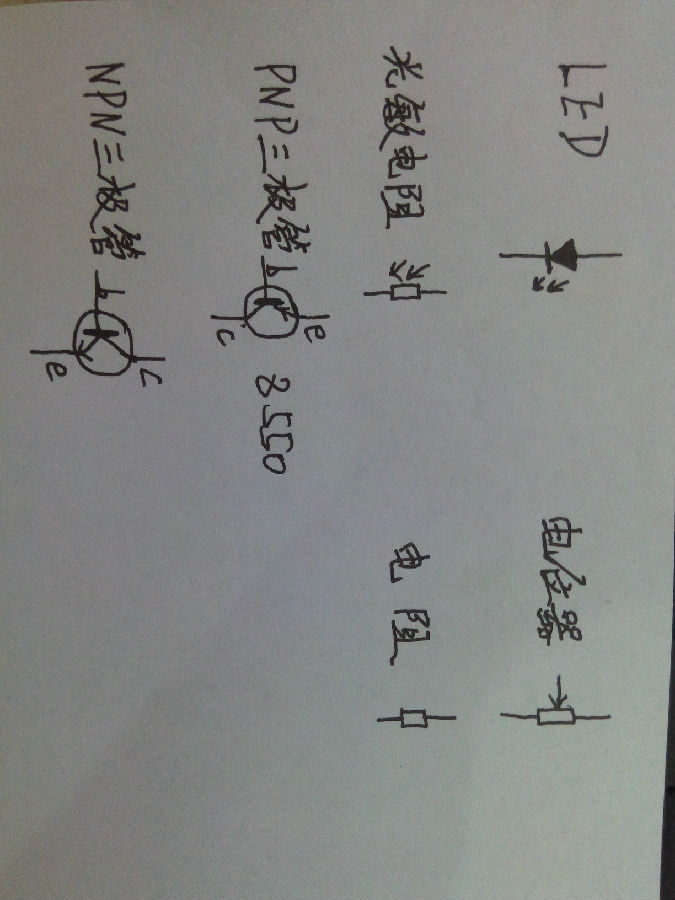 LED
电位器
光敏电阻
电阻
PNP三极管
b
e
c
8550
NPN三极管
b
c
e